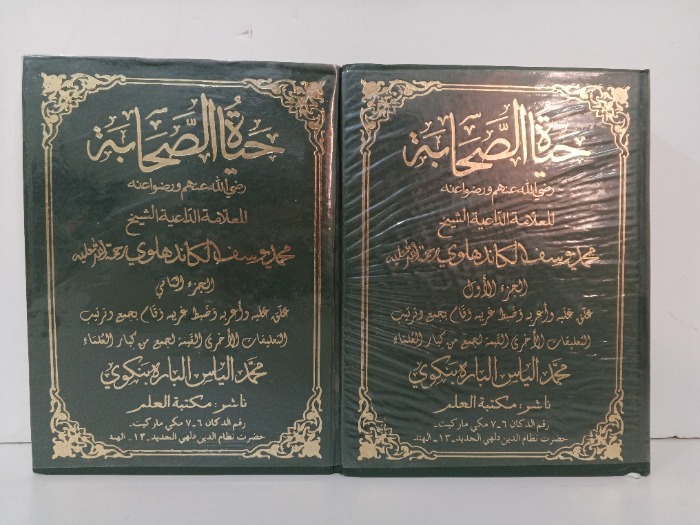 حياة الصحابة
رضي الله عنهم ورضوا عنه
للعلامة الداعية الشيخ
محمد يوسف الكاندهلوي رحمة الله عليه
الجزء الأول
علق عليه وأعربه وضبط غريبه وقام بجميع وترتيب
التعليقات الأخرى القيمة لجميع من كبار العلماء
محمد الياس الباره بنكوي
ناشر: مكتبة العلم
رقم الدكان ٦-٧ مكي ماركيت-
حضرت نظام الدين دلهي الجديد-١٣- الهند
حياة الصحابة
رضي الله عنهم ورضوا عنه
للعلامة الداعية الشيخ
محمد يوسف الكاندهلوي رحمة الله عليه
الجزء الثاني
علق عليه وأعربه وضبط غريبه وقام بجميع وترتيب
التعليقات الأخرى القيمة لجميع من كبار العلماء
محمد الياس الباره بنكوي
ناشر: مكتبة العلم
رقم الدكان ٦-٧ مكي ماركيت-
حضرت نظام الدين دلهي الجديد-١٣- الهند